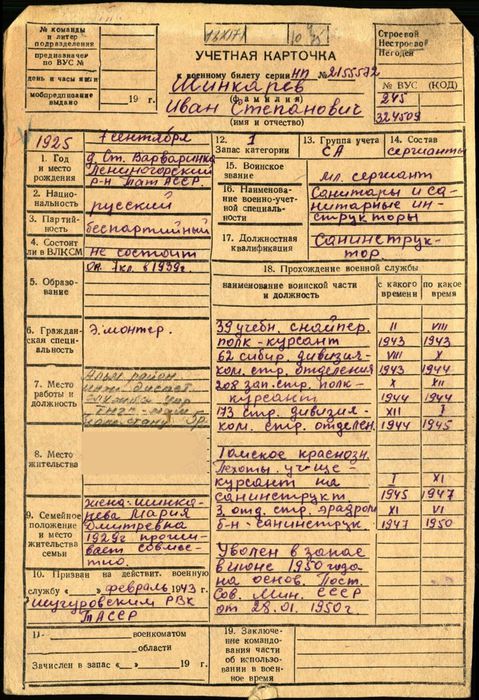 № команды
и литер
подразделения
предназначен
по ВУС №
день и часы явки
мобпредписание
выдано
19 г.
Строевой
Нестроевой
Негоден
УЧЕТНАЯ КАРТОЧКА
к военному билету серии НП № 2155572
Минкарев
(фамилия)
Иван Степанович
(имя и отчество)
№ ВУС (КОД)
245
324509
1925 7 сентября
1. Год
и место
рождения
д. Ст. Варваринка
Лениногорский
р-н ТатАССР.
2. Нацио-
нальность
русский
3. Партий-
ность
беспартийный
4. Состоит
ли в ВЛКСМ
не состоит
5. Образо-
вание
7кл. в 1939г.
6. Граждан-
ская специ-
альность
Э.монтер.
7. Место
работы и
должность
район
8. Место
жительства
9. Семейное
положение
и место
жительства
семьи
жена-Минка-
рева Мария
Дмитревна
1929г прожи-
вает совмес-
тно.
10. Призван на действит. военную
службу «__» февраль 1943 г.
Шугуровским РВК
ТАССР
12. 1
Запас категории
13. Группа учета
СА
14. Состав
сержанты
15. Воинское
звание
мл. сержант
16. Наименован.
военно-учет-
ной специаль-
ности
Санитары и са-
нитарные ин-
структоры
17. Должностная
квалификация
Санинструк-
тор.
18. Прохождение военной службы
наименование воинской части
и должность
с какого
времени
по какое
время
39 учебн. снайпер. II VIII
полк-курсант 1943 1943
62 сибир. дивизия- VIII X
ком. стр. отделения 1943 1944
208 зап. стр. полк- X XII
курсант 1944 1944
173 стр. дивизия- XII I
ком. стр. отделен. 1944 1945
Томское краснозн.
пехотн. учище-
курсант на I XI
санинструкт 1945 1947
3 отд. стр. аэродром XI VI
б-н-санинструк. 1947 1950
Уволен в запас
в июне 1950 года
на основ. Пост.
Сов. Мин. СССР
от 28.01.1950г.
военкоматом
области
Зачислен в запас «__» 19 г.
19. Заключение
командования
части об
использовании в
военное время